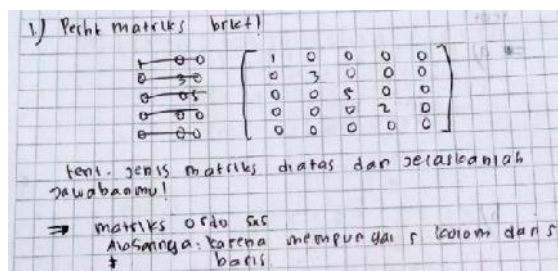 1.) Perht matriks brkt!
1 0 0 0 0
0 3 0 0 0
0 0 5 0 0
0 0 0 2 0
0 0 0 0 0
tent. jenis matriks diatas dan jelaskanlah
jawabanmu!
⇒ matriks ordo 5x5
Alasannya: karena mempunyai 5 kolom dan 5
baris